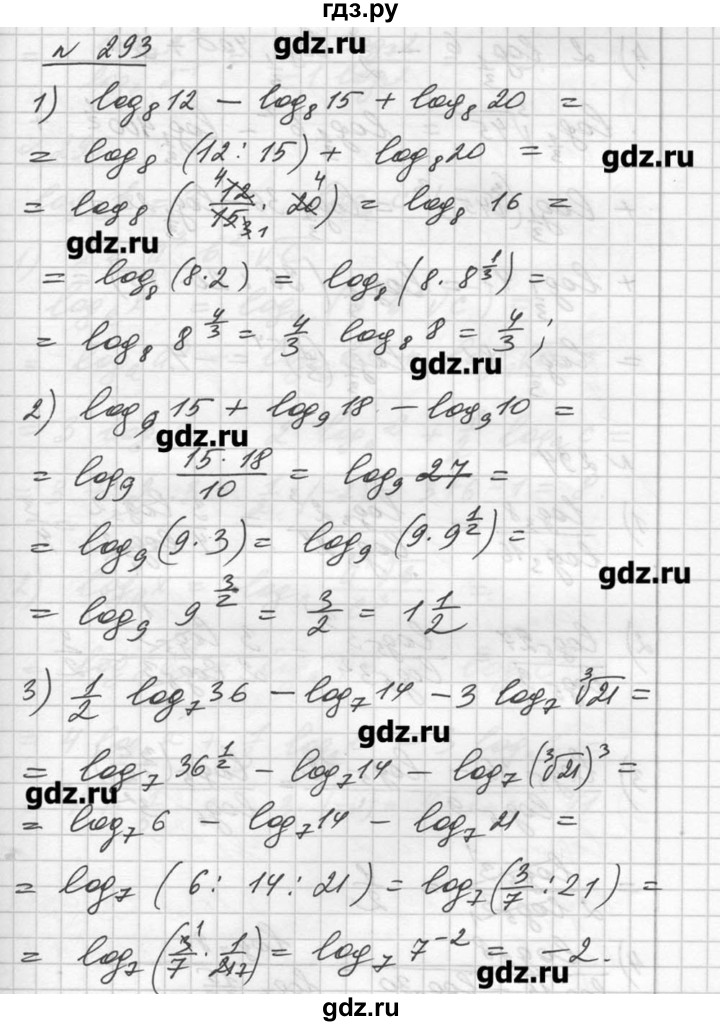 гдз.ру
gdz.ru
N 293
1) log₈12 − log₈15 + log₈20 =
= log₈ (12 : 15) + log₈20 =
gdz.ru
= log₈ ( ⁴12/15₃₁ · 20⁴ ) = log₈ 16 =
gdz.ru
= log₈(8·2) = log₈(8·8^(1/3)) =
= log₈ 8^(4/3) = 4/3 log₈ 8 = 4/3 ;
gdz.ru
2) log₉15 + log₉18 − log₉10 =
gdz.ru
= log₉ (15·18)/10 = log₉ 27 =
= log₉(9·3) = log₉ (9·9^(1/2)) =
gdz.ru
= log₉ 9^(3/2) = 3/2 = 1 1/2
3) 1/2 log₇36 − log₇14 − 3 log₇ ∛21 =
gdz.ru
= log₇ 36^(1/2) − log₇14 − log₇(∛21)³ =
gdz.ru
= log₇6 − log₇14 − log₇ 21 =
= log₇ ( 6 : 14 : 21 ) = log₇(3/7 : 21) =
= log₇ (3¹/7 · 1/21₇) = log₇ 7⁻² = −2.
gdz.ru
gdz.ru